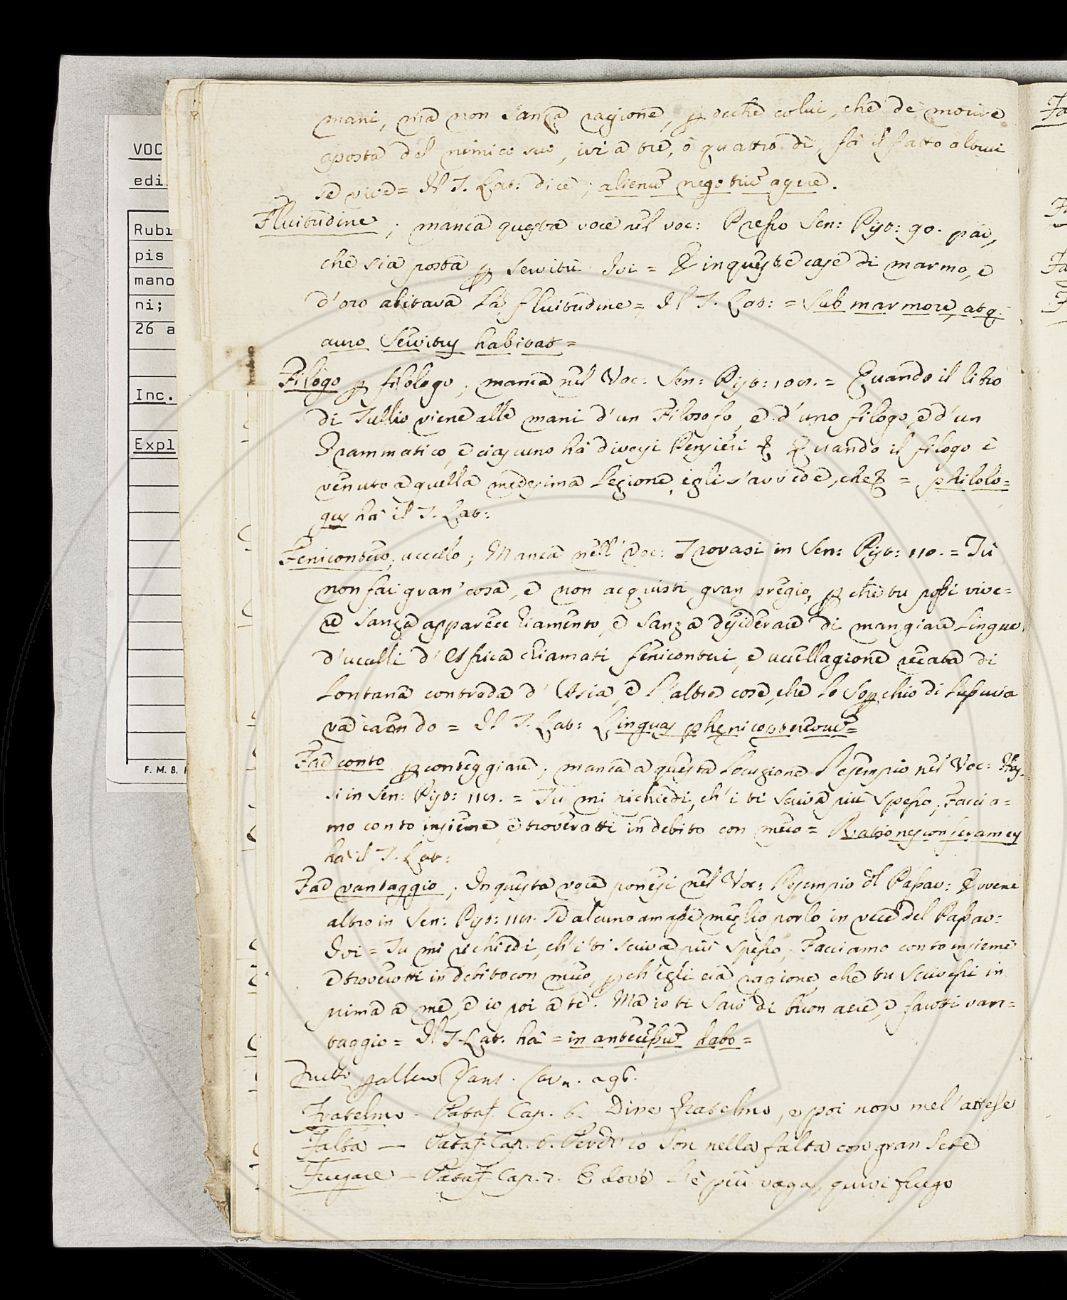 VOC
edi
Rubr
pis
mano
ni;
26 a
Inc.
Expl
F. M. B.
mani, ma non sanza ragione, p ocche colui, che de' morire
a posta del nimico suo, ivi a tre, o quattro dì, fà il fatto altrui
se vive = Il T. Lat: dice; alienũ negotiũ agere.
Fluitudine; manca questa voce nel voc: Presso Sen: Pist: 90. par,
che sia posta p servitù Ivi = E in queste case di marmo, e
d'oro abitava la fluitudine = Il T. Lat: = sub marmore, atq.
auro servitus habitat =
Filogo p filologo; manca nel Voc: Sen: Pist: 108. = Quando il libro
di Tullio viene alle mani d'un Filosofo, e d'uno filogo, e d'un
Grammatico, e ciascuno ha diversi pensieri & Quando il filogo è
venuto a quella medesima lezione, egli s'avvede, che & = philolo=
gus ha il T. Lat:
Feniconteri, uccello; Manca nell Voc: Trovasi in Sen: Pist: 110. = Tu
non fai gran' cosa, e non acquisti gran pregio, p che tu possi vive=
re sanza apparecchiamento, e sanza desiderare di mangiare lingue
d'uccelli d'Africa chiamati fenicontri, e uccellagione recata di
lontana contrada d'Asia, e l'altre cose, che lo soperchio di lussuria
va caendo = Il T. Lat: Linguas phenicopterorũ =
Far conto p conteggiare; manca a questa locuzione l'esempio nel Voc:
si in Sen: Pist: 118. = Tu mi richiedi, ch'i ti scriva più spesso, Faccia=
mo conto insieme, e troveratti in debito con meco = Rationes conferamus
ha il T. Lat:
Far vantaggio; In questa voce ponesi nel Voc: Esempio del Pataf: Evvene
altro in Sen: Pist: 118. Se alcuno amasse meglio porlo in vece del Pataf:
Ivi = Tu mi richiedi, ch'i ti scriva più spesso, Facciamo conto insieme
e troverotti in debito con meco, p ch'egli era ragione che tu scrivessi in
prima a me, e io poi a te. Ma io ti sarò di buon aere, e farotti van=
taggio = Il T. Lat. ha = in antecessũ dabo =
Fratelmo - Pataf. Cap. 6. Dine fratelmo, e poi non mel'attese
Falta — Pataf. Cap. 6. Perch'io son nella falta con gran sete
Fregare — Pataf. Cap. 7. E dove - è più vaga, quivi frego